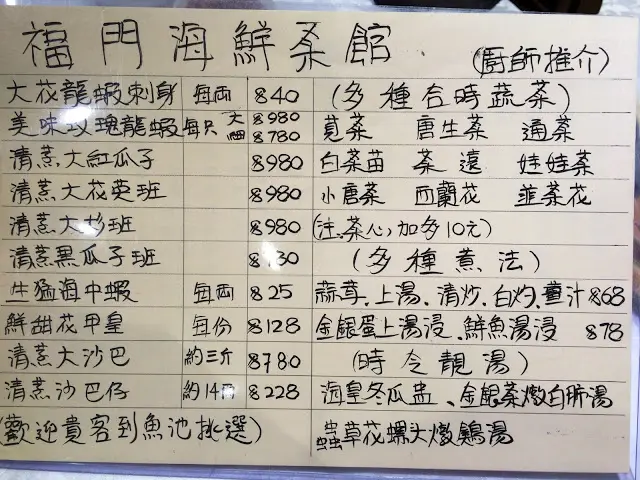 福門海鮮菜館 (廚師推介)
大花龍蝦刺身 每両 $40
美味玫瑰龍蝦 每只 大 $980
細 $780
清蒸大紅瓜子 $980
清蒸大花英班 $980
清蒸大杉班 $980
清蒸黑瓜子班
生猛海中蝦 每両 $25
鮮甜花甲皇 每份 $128
清蒸大沙巴 約三斤 $780
清蒸沙巴仔 約14両 $228
(歡迎貴客到魚池挑選)
(多種合時蔬菜)
莧菜 唐生菜 通菜
白菜苗 菜遠 娃娃菜
小唐菜 西蘭花 韮菜花
(注:菜心加多10元)
(多種煮法)
蒜茸、上湯、清炒、白灼、薑汁 $68
金銀蛋上湯浸、鮮魚湯浸 $78
(時令靚湯)
海皇冬瓜盅、金銀菜燉白肺湯
蟲草花螺头燉鷄湯